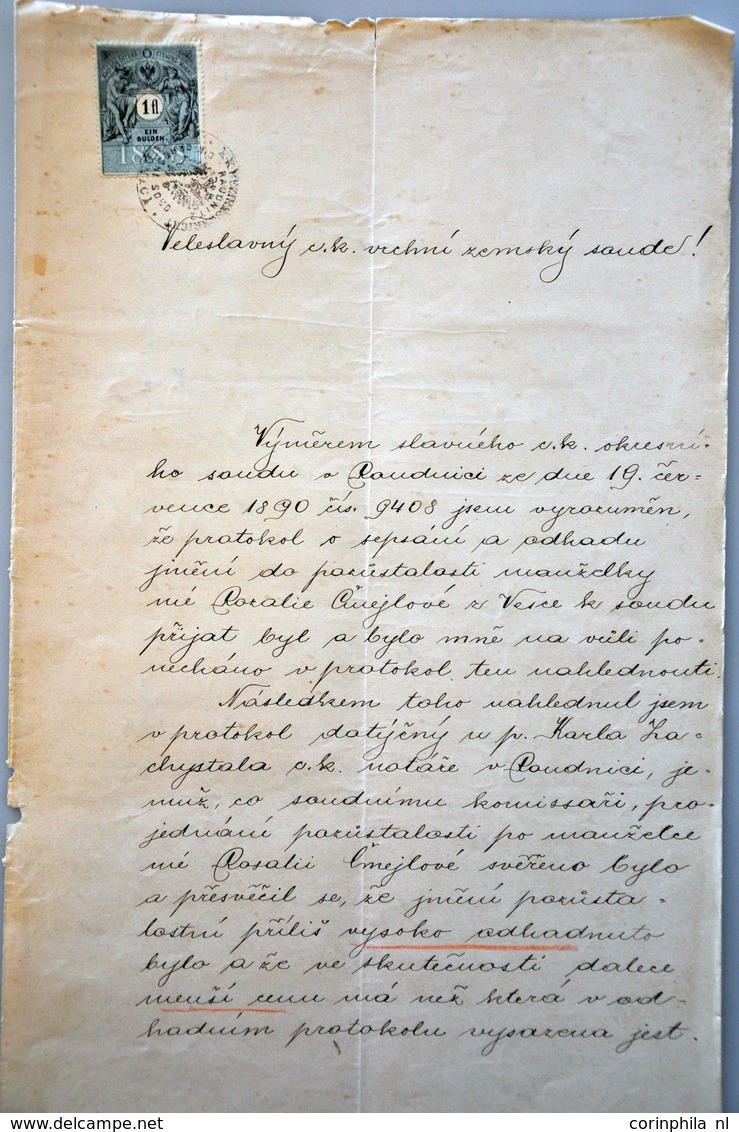 1 fl
EIN
GULDEN.
1888
Veleslavný c.k. vrchní zemský soude!
Výměrem slavného c.k. okresní-
ho soudu v Roudnici ze dne 19. čer-
vence 1890 čís. 9408 jsem vyrozuměn,
že protokol o sepsání a odhadu
jmění do pozůstalosti manželky
mé Rozalie Čmejlové z Vesce k soudu
přijat byl a bylo mně na vůli po-
necháno v protokol ten nahlednouti.
Následkem toho nahlednul jsem
v protokol datyčný u p. Karla Za-
chystala c.k. notáře v Roudnici, je-
muž, co soudnímu komissaři, pro-
jednání pozůstalosti po manželce
mé Rosalii Čmejlové svěřeno bylo
a přesvěčil se, že jmění pozůsta-
lostní příliš vysoko odhadnuto
bylo a že ve skutečnosti dalece
menší cenu má než která v od-
hadním protokolu vysazena jest.
corinphila nl